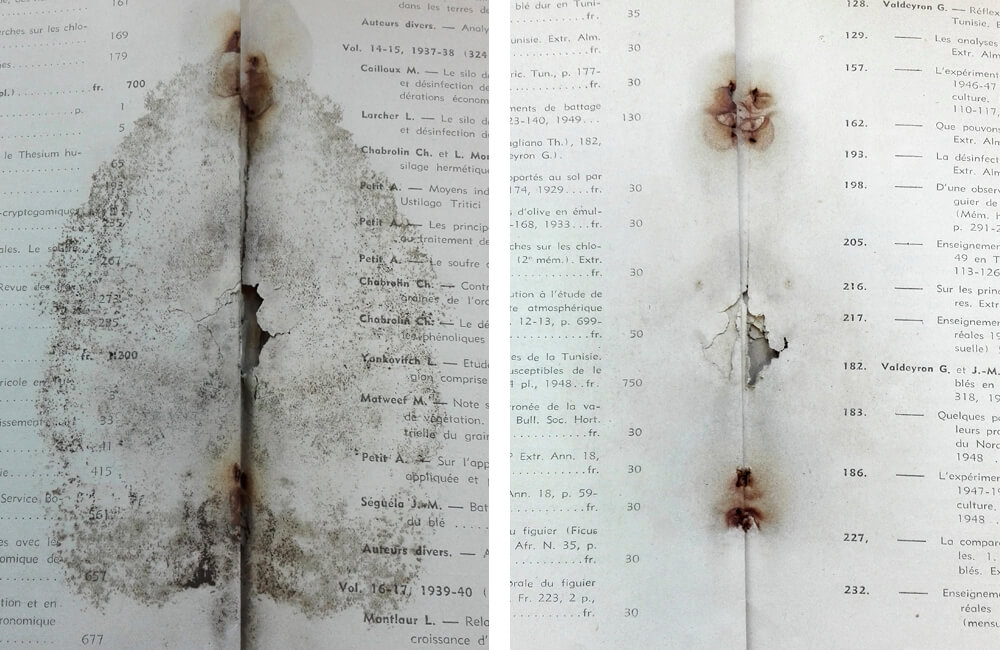 161
erches sur les chlo-
169
nes
179
pl.) fr. 700
p. 1
5
le Thesium hu-
65
193
-cryptogamique
235
ales. Le
267
Revue des
273
285
fr. 1.200
ricole en
issement
33
41
ie 415
Service Bo-
561
es avec le
omique de
657
tion et en
ronomique
677
dans les terres de
Auteurs divers. — Analy
Vol. 14-15, 1937-38 (324
Cailloux M. — Le silo d
et désinfection de
dérations économ
Larcher L. — Le silo d
et désinfection d
Chabrolin Ch. et L. Mor
silage hermétique
Petit A. — Moyens ind
Ustilago Tritici
Petit A. — Les princip
ou traitement de
Petit A. — Le soufre
Chabrolin Ch. — Contr
graines de l'oro
Chabrolin Ch. — Le dé
phénoliques
Yankovitch L. — Etude
comprise
Matweef M. — Note s
de végétation.
trielle du grain
Petit A. — Sur l'app
appliquée et
Séguéla J.-M. — Bat
du blé
Auteurs divers. — A
Vol. 16-17, 1939-40 (
Montlaur L. — Rela
croissance d'
blé dur en Tuni-
fr. 35
unisie. Extr. Alm.
fr. 30
ric. Tun., p. 177-
fr. 30
ments de battage
23-140, 1949... 130
gliano Th.), 182,
eyron G.).
pportés au sol par
174, 1929....fr. 30
s d'olive en émul-
-168, 1933...fr. 30
ches sur les chlo-
(2e mém.). Extr.
fr. 30
ution à l'étude de
re atmosphérique
12-13, p. 699-
fr. 50
es de la Tunisie.
usceptibles de le
pl., 1948..fr. 750
ronée de la va-
Bull. Soc. Hort.
fr. 30
Extr. Ann. 18,
fr. 30
Ann. 18, p. 59-
fr. 30
u figuier (Ficus
Afr. N. 35, p.
fr. 30
orale du figuier
Fr. 223, 2 p.,
fr. 30
128. Valdeyron G. — Réflex
Tunisie. E
129. —— Les analyses
Extr. Alm
157. —— L'expérimen
1946-47
culture.
110-117,
162. —— Que pouvon
Extr. Alm
193. —— La désinfect
Extr. Alm
198. —— D'une observ
guier de
(Mém. H
p. 291-2
205. —— Enseignemen
49 en T
113-126
216. —— Sur les princ
res. Extr
217. —— Enseignemen
réales 19
suelle)
182. Valdeyron G. et J.-M.
blés en
318, 19
183. —— Quelques po
leurs pro
du Nord
1948
186. —— L'expérimen
1947-19
culture.
1948
227, —— La compara
les. 1.
blés. Ex
232. —— Enseigneme
réales
(mensu